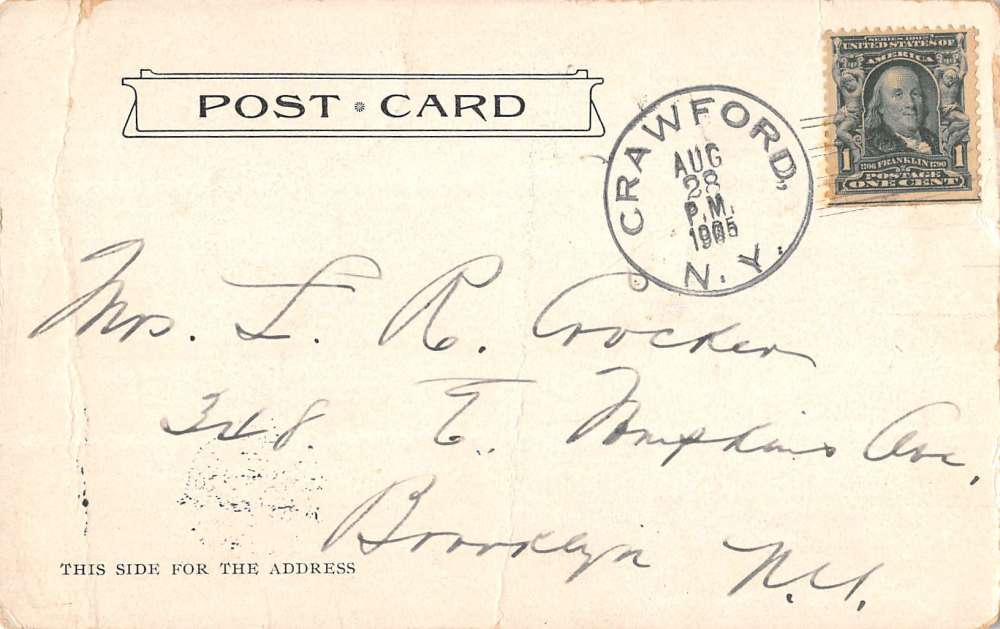 POST CARD
CRAWFORD, N.Y.
AUG
28
P.M.
1905
SERIES 1902
UNITED STATES OF
AMERICA
1 1706 FRANKLIN 1790 1
POSTAGE
ONE CENT
Mrs. L. R. Crocker
348. E. Tompkins Ave,
Brooklyn N.Y.
THIS SIDE FOR THE ADDRESS